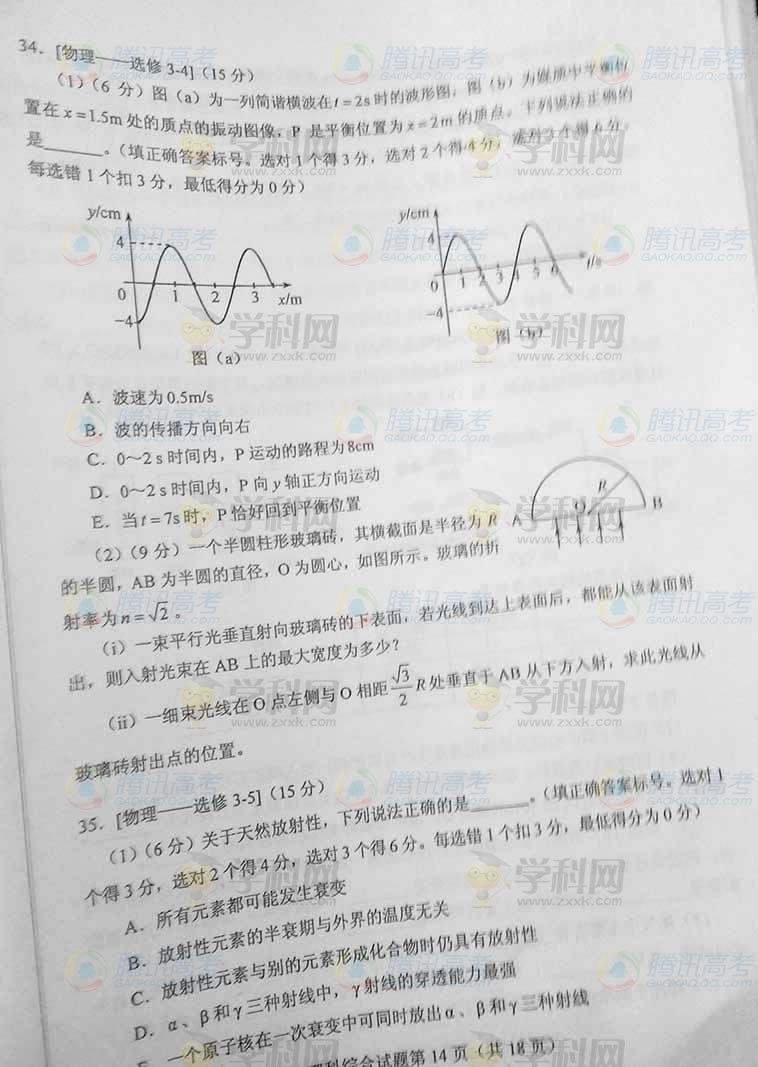 34．[物理——选修 3-4]（15 分）
（1）（6 分）图（a）为一列简谐横波在 t = 2s 时的波形图，图（b）为媒质中平衡位
置在 x = 1.5m 处的质点的振动图像，P 是平衡位置为 x = 2m 的质点。下列说法正确的
是______。（填正确答案标号。选对 1 个得 3 分，选对 2 个得 4 分，选对 3 个得 6 分。
每选错 1 个扣 3 分，最低得分为 0 分）
y/cm
4
0
-4
1 2 3 x/m
图（a）
y/cm
4
0
-4
1 2 3 4 5 6 t/s
图（b）
A．波速为 0.5m/s
B．波的传播方向向右
C．0～2 s 时间内，P 运动的路程为 8cm
D．0～2 s 时间内，P 向 y 轴正方向运动
E．当 t = 7s 时，P 恰好回到平衡位置
（2）（9 分）一个半圆柱形玻璃砖，其横截面是半径为 R
的半圆，AB 为半圆的直径，O 为圆心，如图所示。玻璃的折
射率为 n = √2 。
A O R B
（i）一束平行光垂直射向玻璃砖的下表面，若光线到达上表面后，都能从该表面射
出，则入射光束在 AB 上的最大宽度为多少？
（ii）一细束光线在 O 点左侧与 O 相距 √3/2 R 处垂直于 AB 从下方入射，求此光线从
玻璃砖射出点的位置。
35．[物理——选修 3-5]（15 分）
（1）（6 分）关于天然放射性，下列说法正确的是______。（填正确答案标号。选对 1
个得 3 分，选对 2 个得 4 分，选对 3 个得 6 分。每选错 1 个扣 3 分，最低得分为 0 分）
A．所有元素都可能发生衰变
B．放射性元素的半衰期与外界的温度无关
C．放射性元素与别的元素形成化合物时仍具有放射性
D．α、β和γ三种射线中，γ射线的穿透能力最强
一个原子核在一次衰变中可同时放出α、β和γ三种射线
科综合试题第 14 页（共 18 页）
腾讯高考
GAOKAO.QQ.COM
学科网
www.zxxk.com